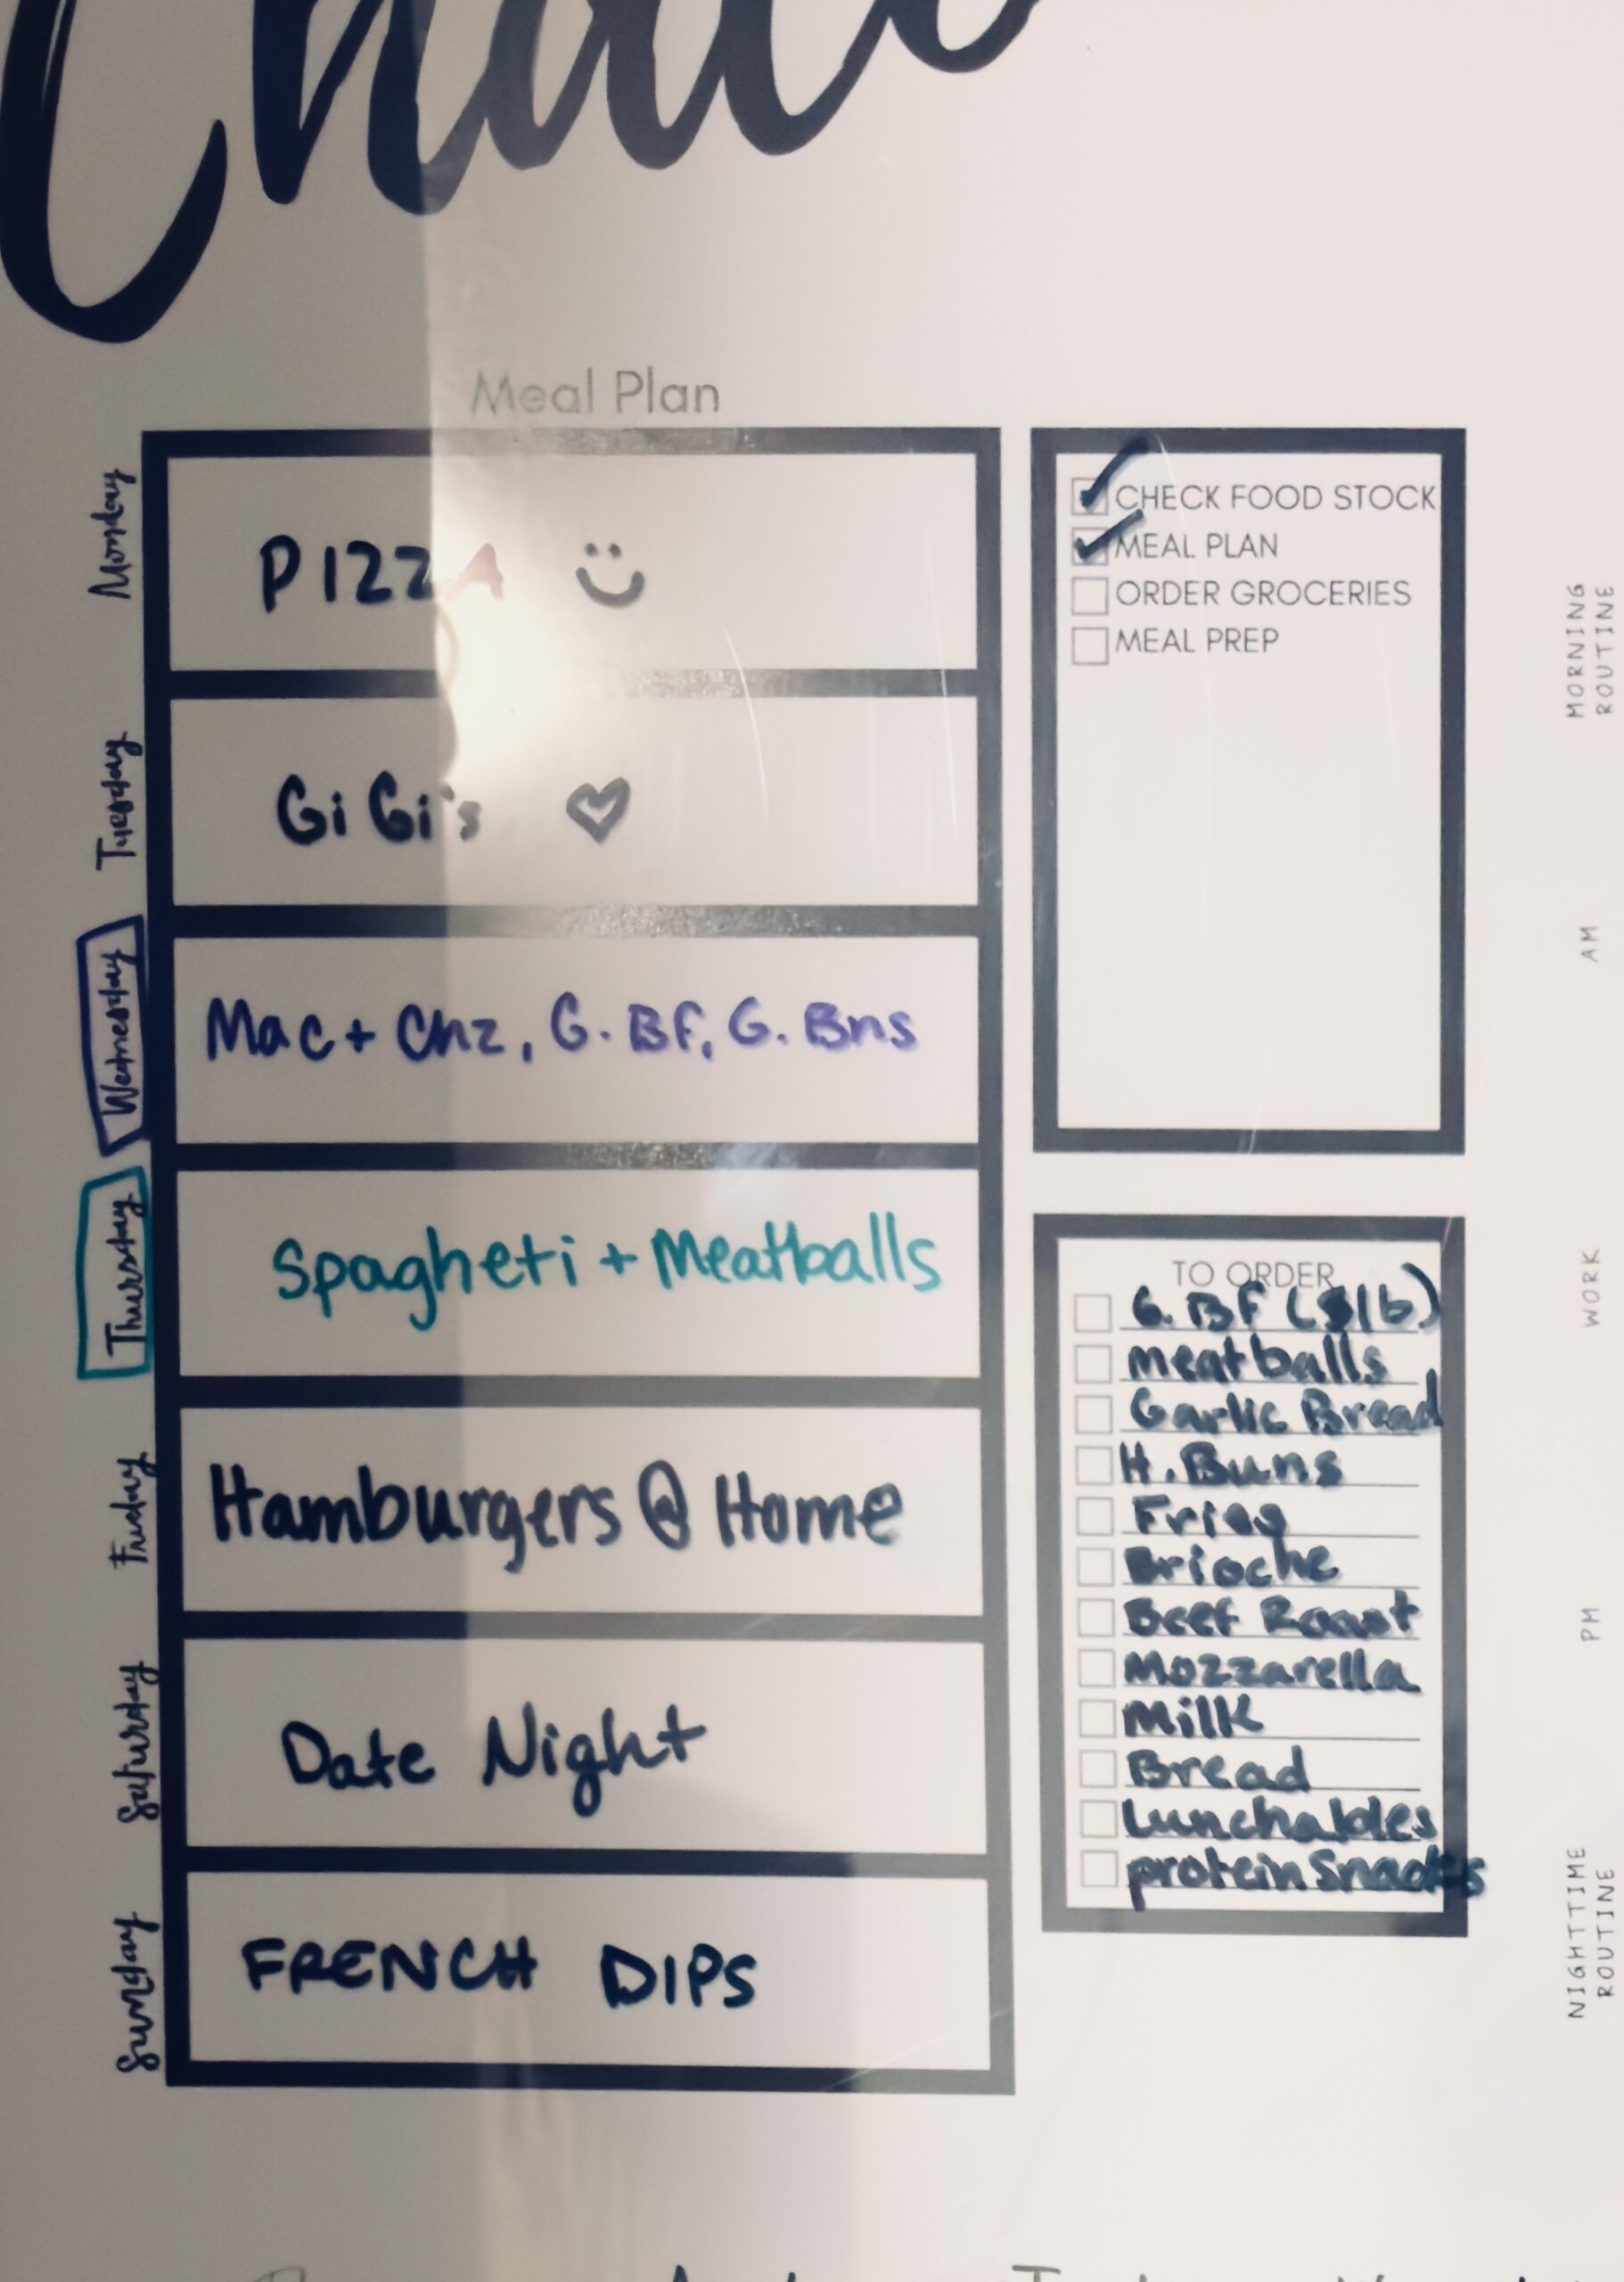 Meal Plan
Monday
PIZZA
Tuesday
GiGi's
Wednesday
Mac + Chz, G. Bf, G. Bns
Thursday
Spagheti + Meatballs
Friday
Hamburgers @ Home
Saturday
Date Night
Sunday
FRENCH DIPS
CHECK FOOD STOCK
MEAL PLAN
ORDER GROCERIES
MEAL PREP
TO ORDER
G. Bf
meatballs
Garlic Bread
H. Buns
Fries
Brioche
Beef Roast
Mozzarella
Milk
Bread
Lunchables
protein Snacks
MORNING
ROUTINE
AM
WORK
PM
NIGHTTIME
ROUTINE